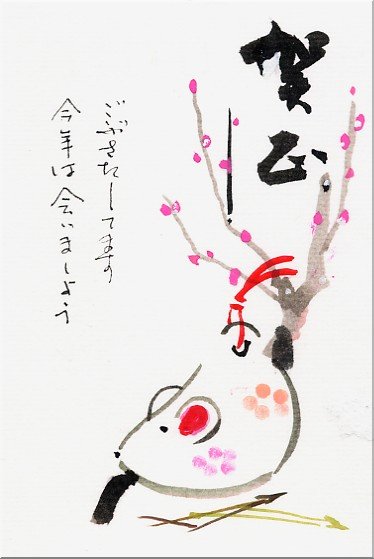 賀正
ごぶさたしてます
今年は会いましょう